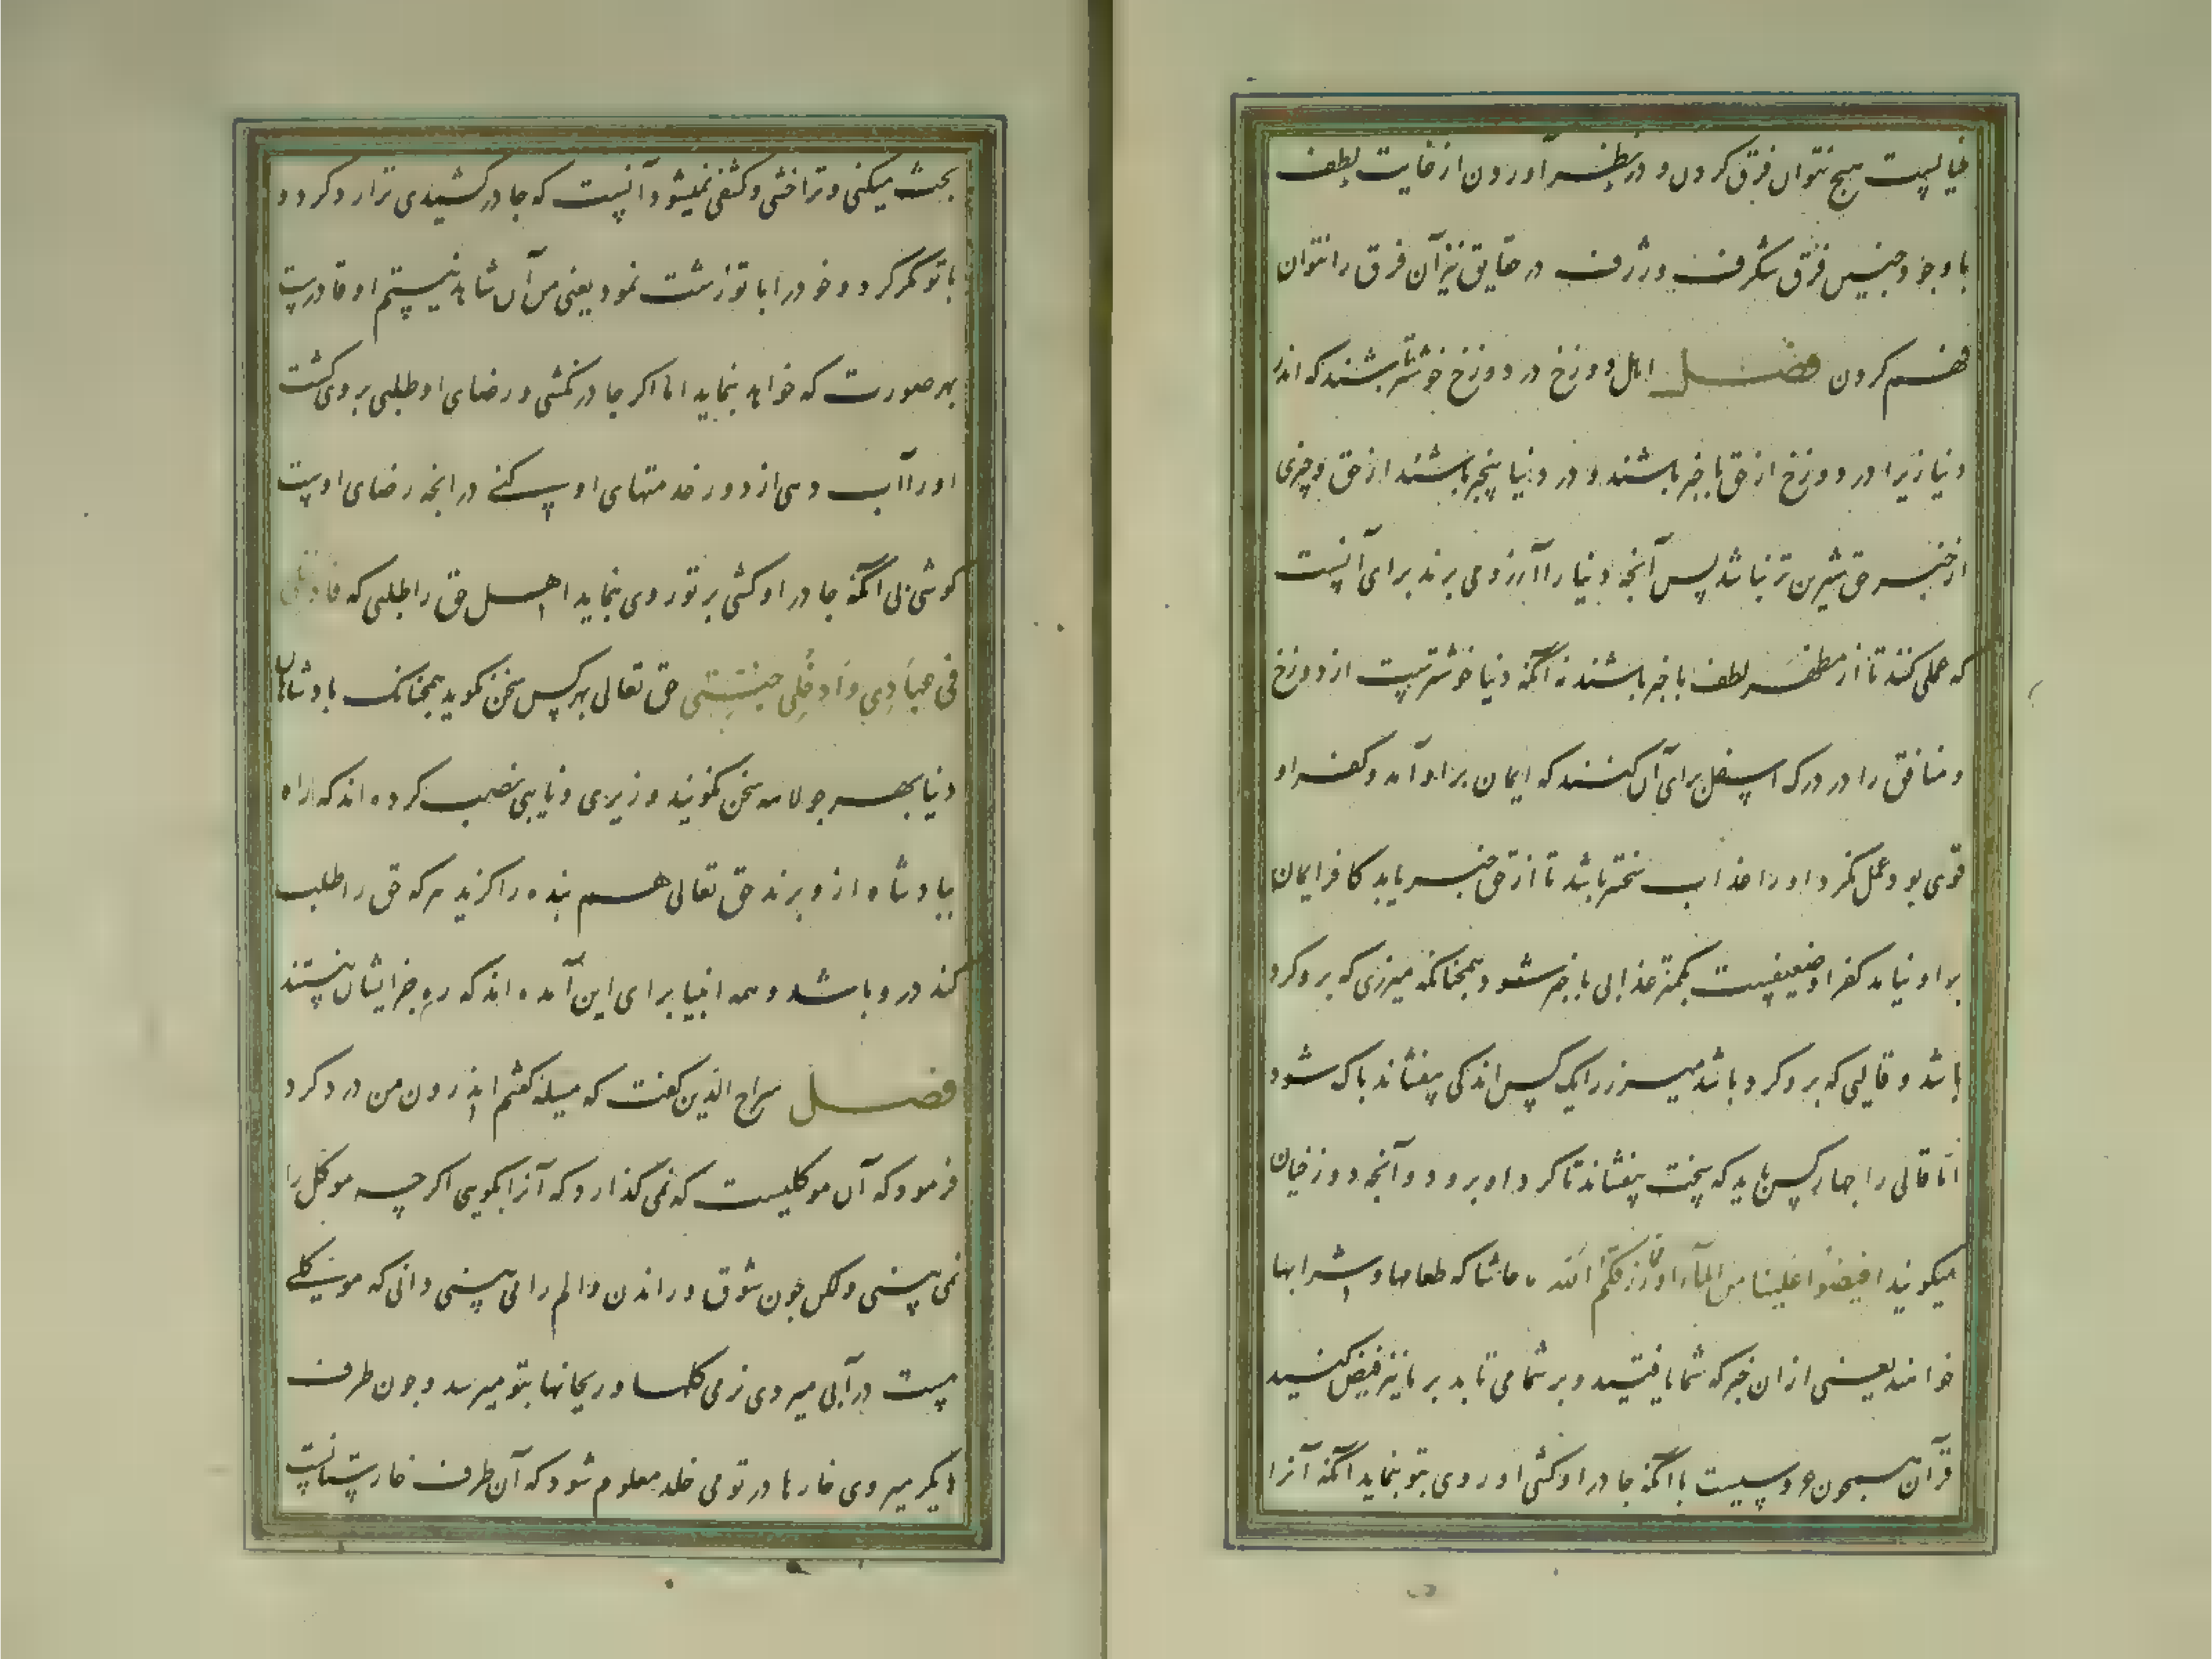 خیالیست هیچ نتوان فرق کردن و در نظر آوردن از غایت لطف
با وجود چنین فرق شگرف و ژرف در حقایق نیز آن فرق را نتوان
فهم کردن فصل اهل دوزخ در دوزخ خوشتر باشند که اندر
دنیا زیرا در دوزخ از حق باخبر باشند و در دنیا بیخبر باشند از حق و چیزی
از خبر حق شیرین تر نباشد پس آنچه دنیا را آرزو می برند برای آنست
که عملی کنند تا از مظهر لطف باخبر باشند نه آنکه دنیا خوشترست از دوزخ
و منافق را در درک اسفل برای آن کنند که ایمان بر او آمد و کفر او
قوی بود عمل نکرد او را عذاب سختتر باشد تا از حق خبر یابد کافر ایمان
بر او نیامد کفر او ضعیفست بکمتر عذابی باخبر شود همچنانکه میزری که برو گرد
باشد و قالیی که برو گرد باشد میزر را یک کس اندکی بیفشاند پاک شود
اما قالی را چهار کس باید که سخت بیفشاند تا گرد او برود و آنچه دوزخیان
میگویند افیضوا علینا من المآء او مما رزقکم الله حاشا که طعامها و شرابها
خواهند یعنی از ان چیز که شما یافتید و بر شما می تابد بر ما نیز فیض کنید
قرآن همچون عروسیست با آنکه چادر او کشی او روی بتو ننماید آنکه آنرا
بحث میکنی و ترا خوشی و کشفی نمیشود آنست که چادر کشیدی ترا رد کرد و
با تو مکر کرد و خود را با تو زشت نمود یعنی من آن شاهد نیستم او قادرست
بهر صورت که خواهد بنماید اما اگر چادر نکشی و رضای او طلبی بروی کشت
او را آب دهی از دور خدمتهای او کنی در آنچه رضای اوست
کوشی بی آنکه چادر او کشی بر تو روی بنماید اهل حق را طلبی که فادخلی
فی عبادی وادخلی جنتی حق تعالی بهر کس سخن نگوید همچنانک پادشاهان
دنیا بهر جولاهه سخن نگویند وزیری و نایبی نصب کرده اند که راه
بپادشاه ازو برند حق تعالی هم بنده را گزید هر که حق را طلب
کند درو باشد و همه انبیا برای این آمده اند که ره جز ایشان نیستند
فصل سراج الدین گفت که مسئله گفتم اندرون من درد کرد
فرمود که آن موکلیست که نمی گذارد که آنرا بگویی اگرچه موکل را
نمی بینی ولکن چون شوق و راندن و الم را می بینی دانی که موکلی
هست در آبی میروی نرمی گلها و ریحانها بتو میرسد و چون طرف
دیگر میروی خارها در تو می خلد معلوم شود که آن طرف خارستانست